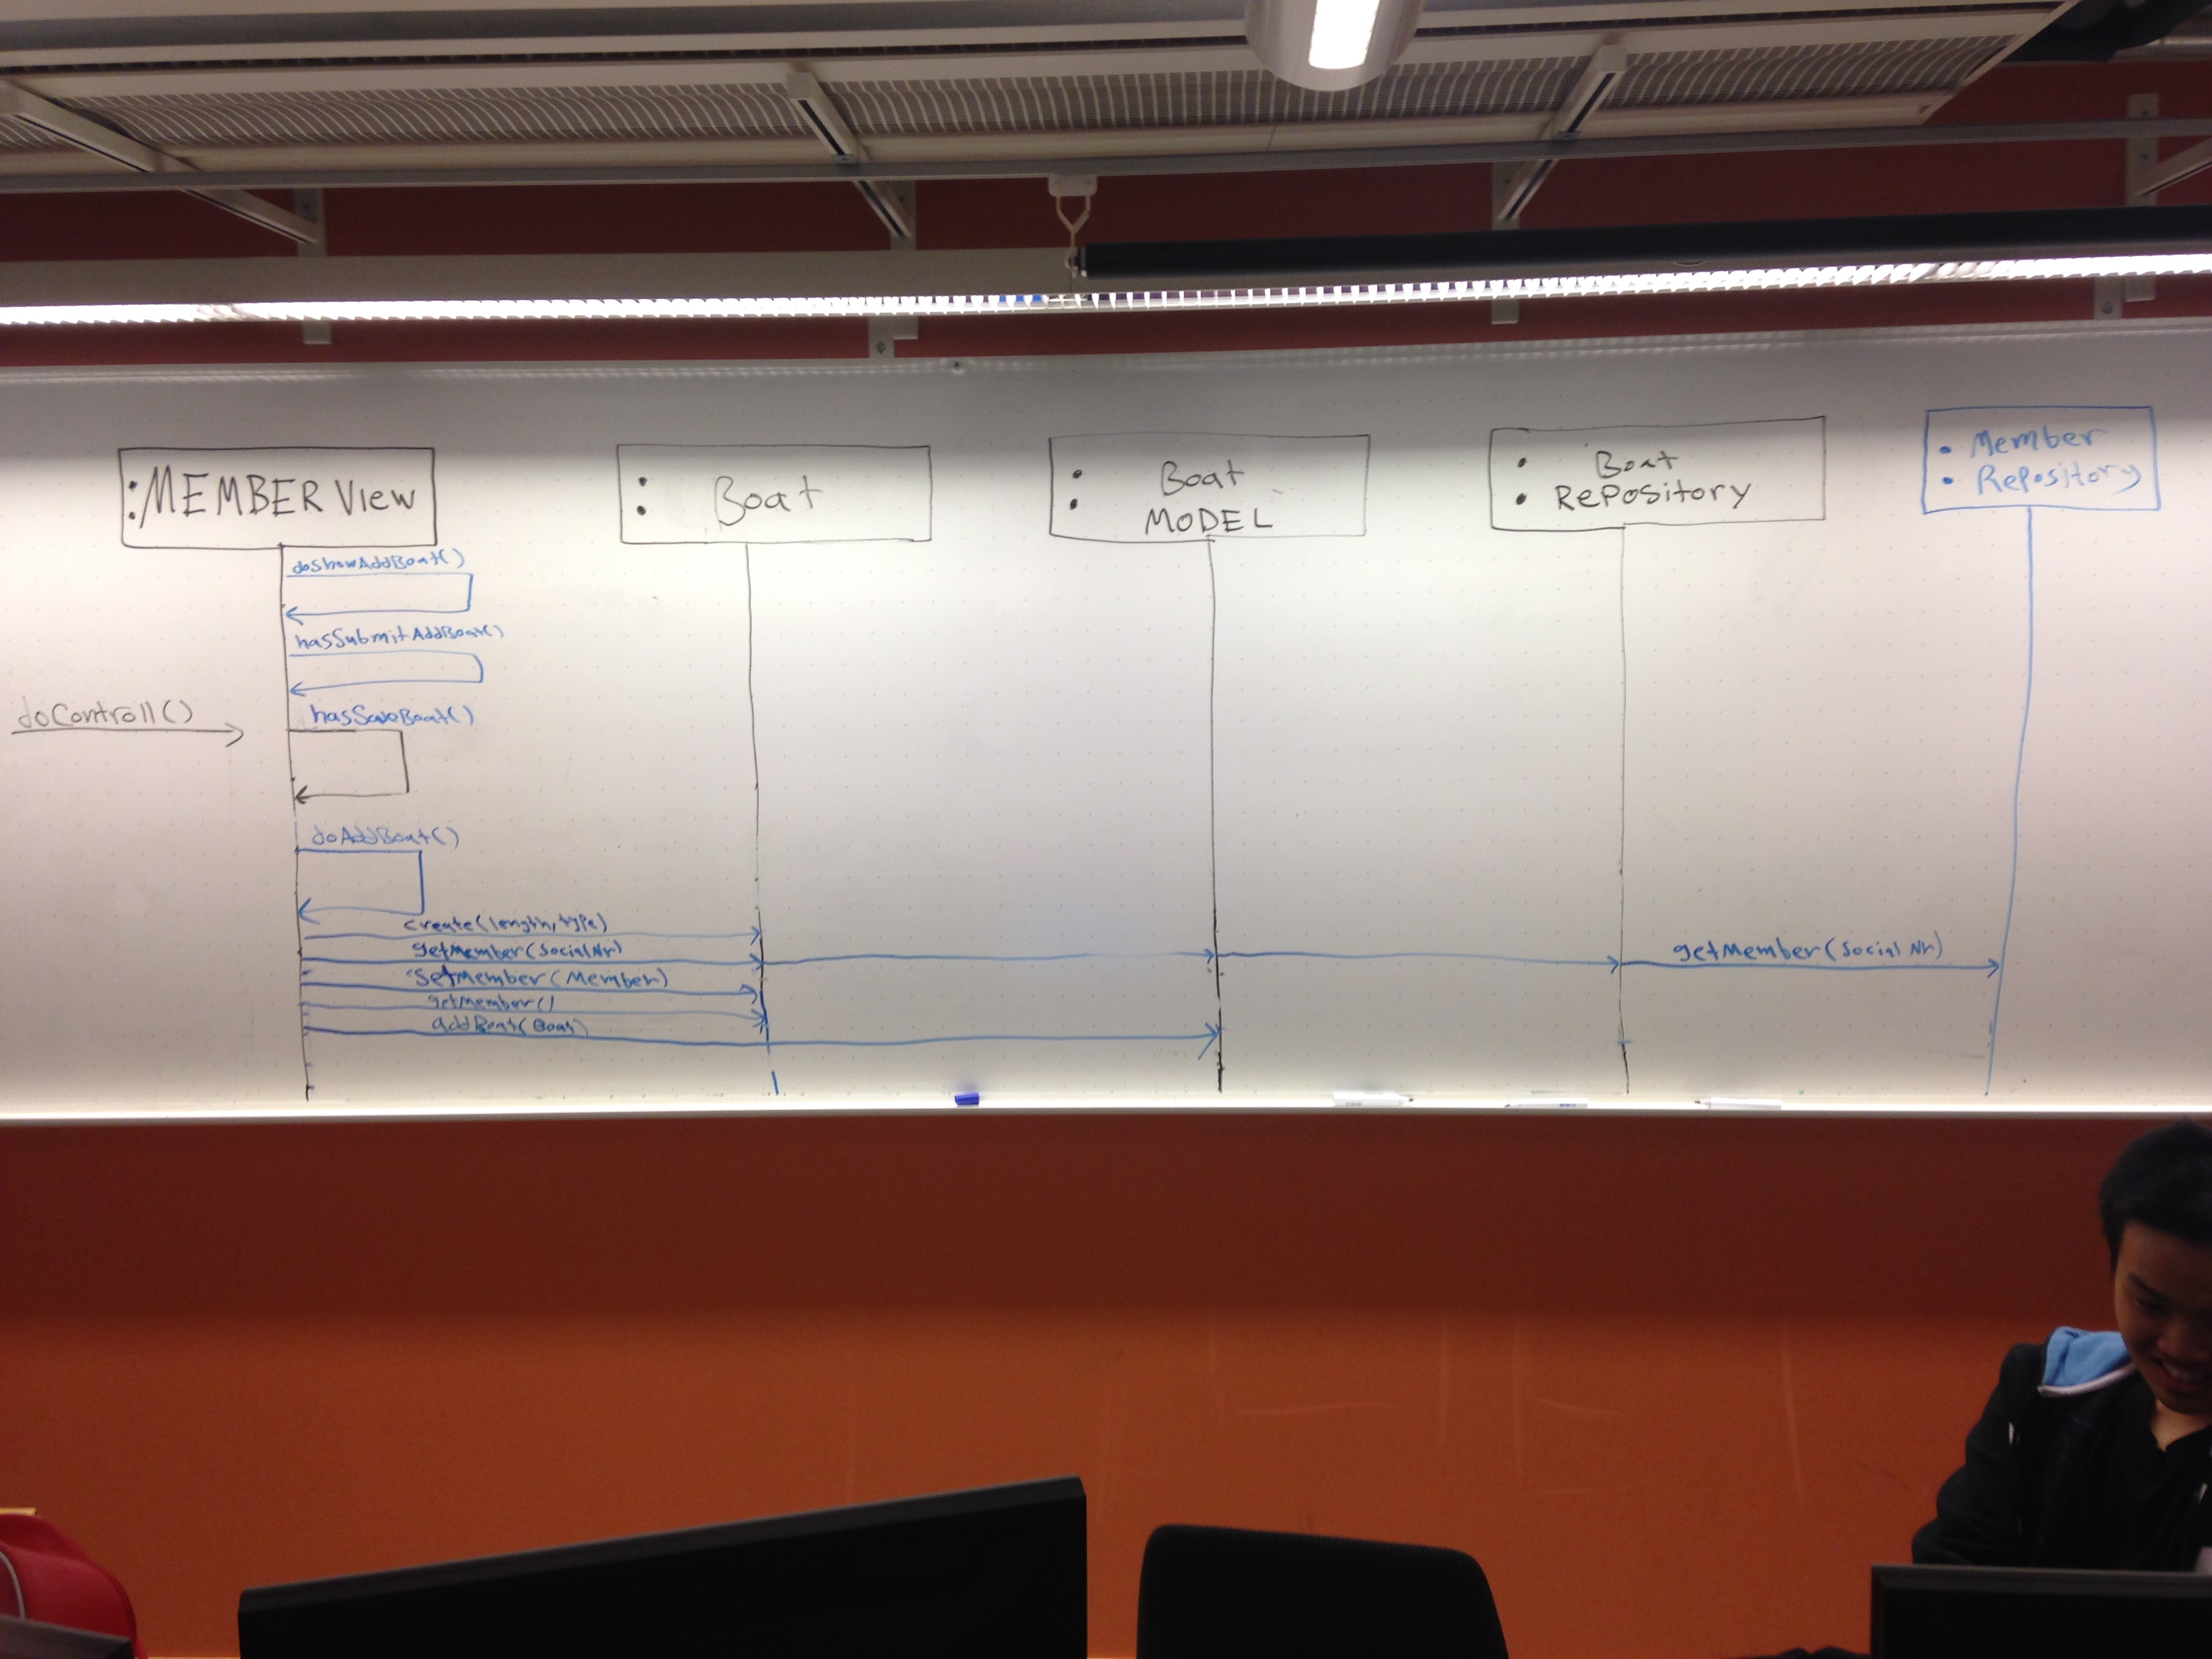 :MEMBER View
: Boat
: Boat
MODEL
: Boat
Repository
: Member
Repository
doShowAddBoat()
hasSubmitAddBoat()
doControll()
hasSaveBoat()
doAddBoat()
create(length, type)
getMember(SocialNr)
getMember(Social Nr)
SetMember(Member)
getMember()
addBoat(Boat)